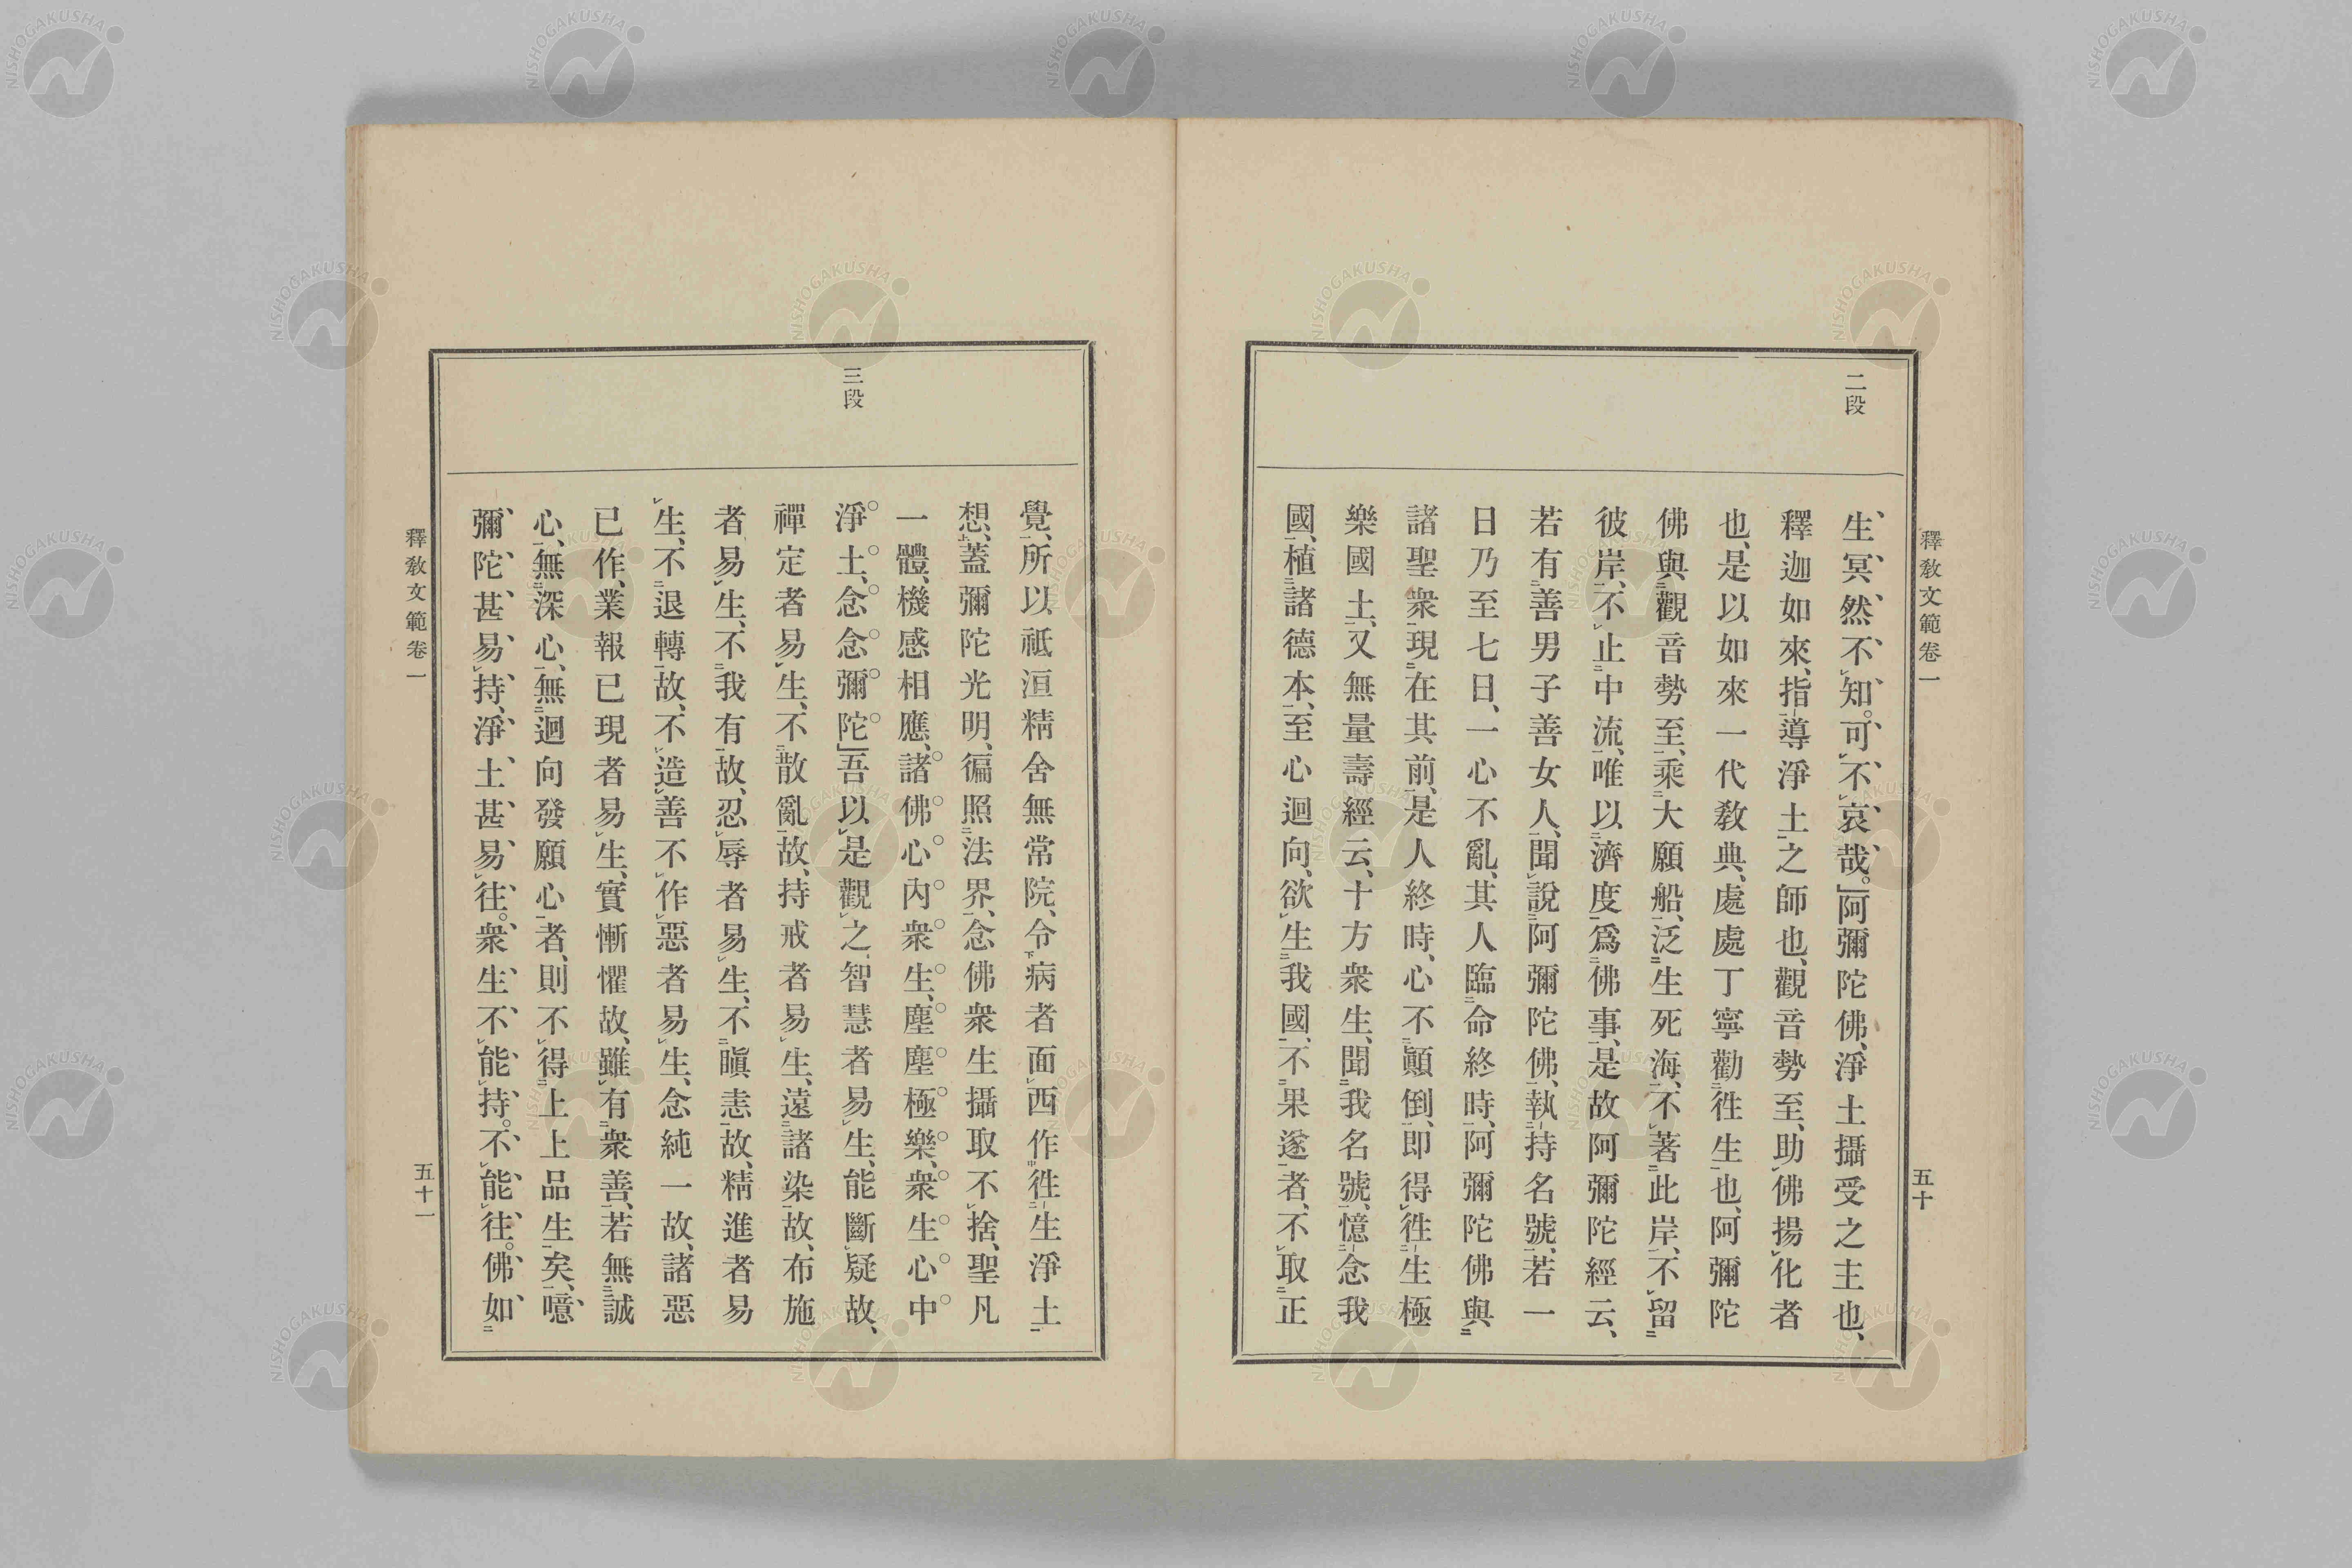 釋教文範卷一
五十
二段
生冥然不知。可不哀哉。」阿彌陀佛、淨土攝受之主也、
釋迦如來、指導淨土之師也、觀音勢至、助佛揚化者
也、是以如來一代教典、處處丁寧勸徃生也、阿彌陀
佛與觀音勢至、乘大願船、泛生死海、不著此岸、不留
彼岸、不止中流、唯以濟度爲佛事、是故阿彌陀經云、
若有善男子善女人、聞說阿彌陀佛、執持名號、若一
日乃至七日、一心不亂、其人臨命終時、阿彌陀佛與
諸聖衆現在其前、是人終時、心不顚倒、卽得徃生極
樂國土、又無量壽經云、十方衆生、聞我名號、憶念我
國、植諸德本、至心迴向、欲生我國、不果遂者、不取正
覺、所以祗洹精舍無常院、令病者面西作徃生淨土
想、蓋彌陀光明、徧照法界、念佛衆生攝取不捨、聖凡
一體、機感相應、諸佛心內衆生、塵塵極樂、衆生心中
淨土、念念彌陀」吾以是觀之、智慧者易生、能斷疑故、
禪定者易生、不散亂故、持戒者易生、遠諸染故、布施
者易生、不我有故、忍辱者易生、不瞋恚故、精進者易
生、不退轉故、不造善不作惡者易生、念純一故、諸惡
已作、業報已現者易生、實慚懼故、雖有衆善、若無誠
心、無深心、無迴向發願心者、則不得上上品生矣、噫
彌陀甚易持、淨土甚易往。衆生不能持。不能往。佛如
三段
釋教文範卷一
五十一
NISHOGAKUSHA